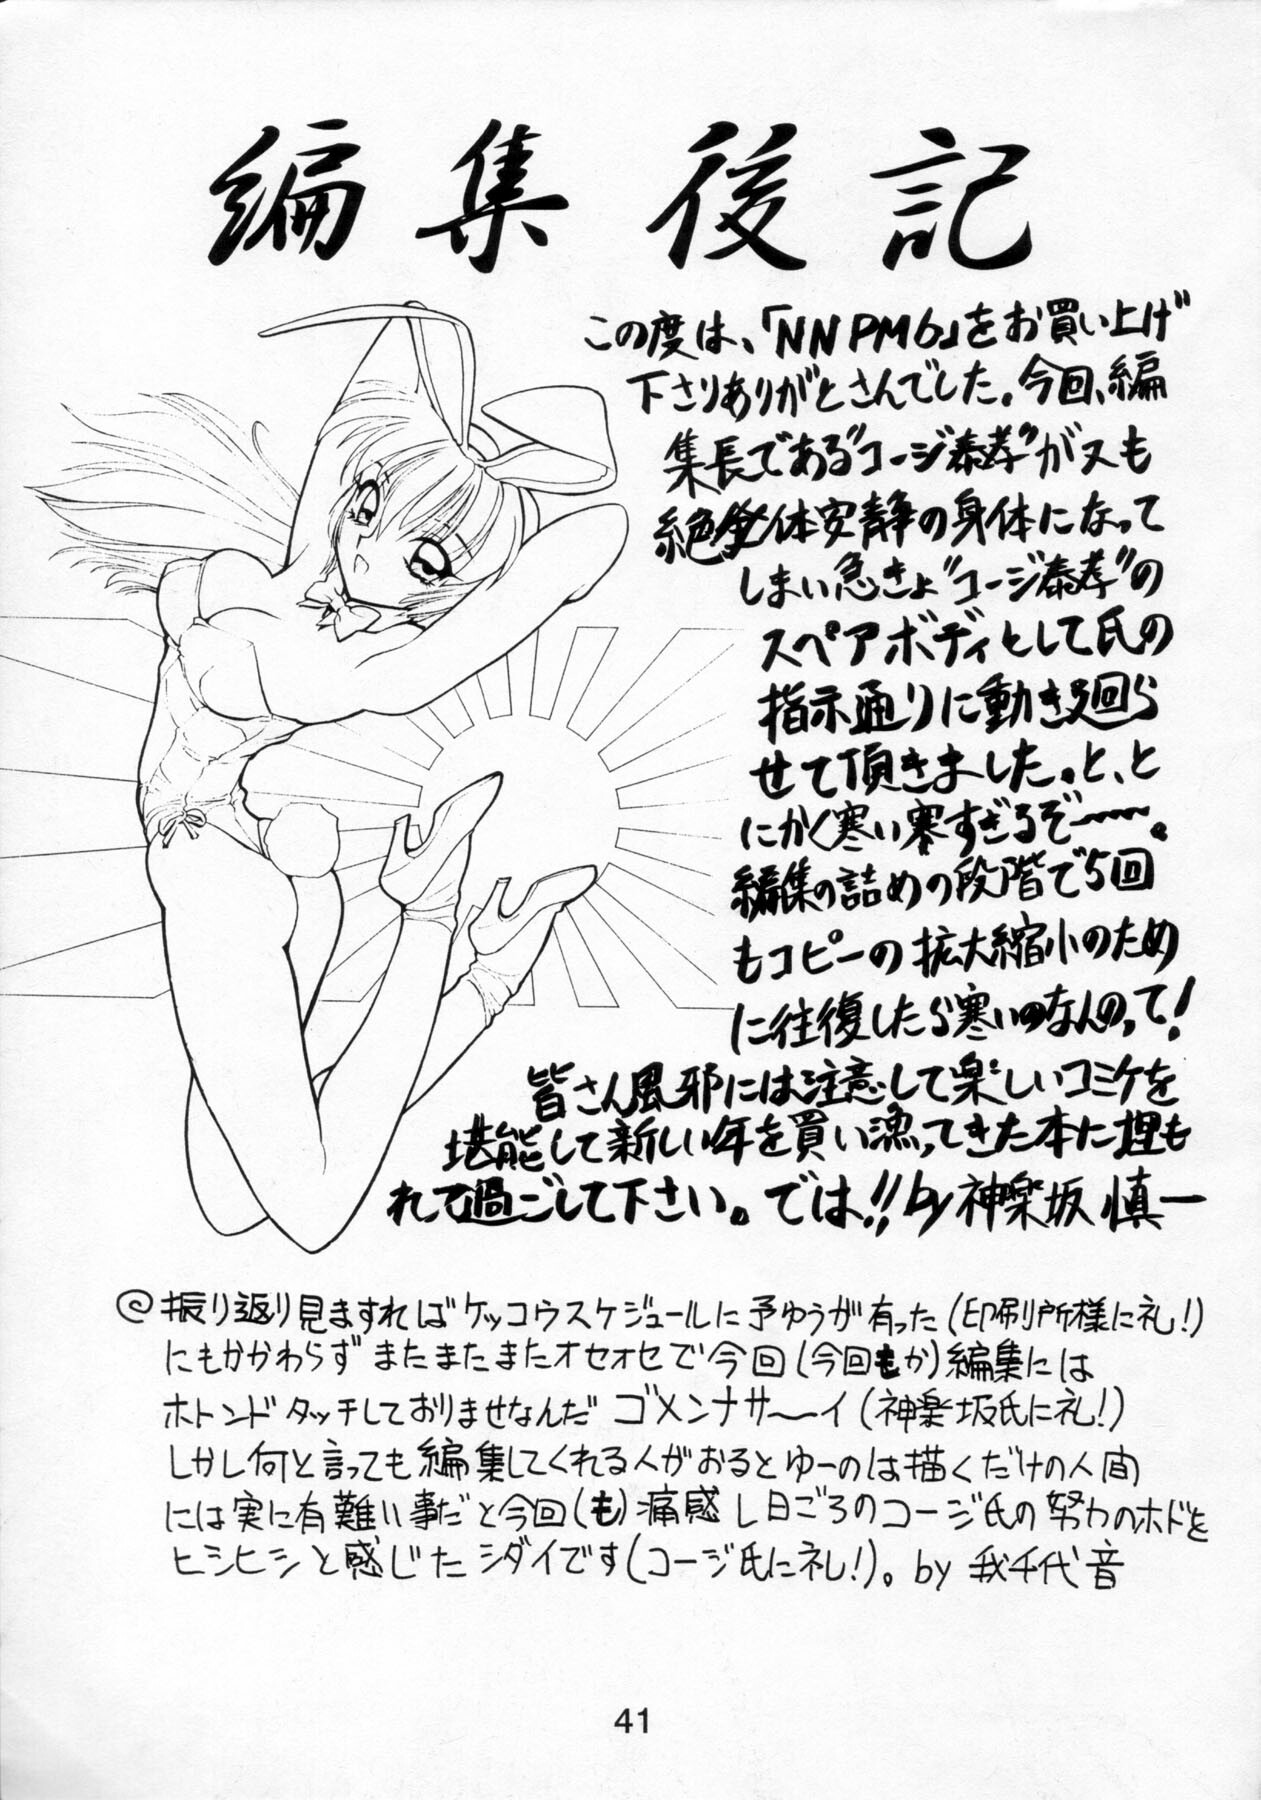 編集後記
この度は、「NNPM6」をお買い上げ
下さりありがとさんでした。今回、編
集長である"コージ泰孝"が又も
絶対安静の身体になって
しまい急きょ"コージ泰孝"の
スペアボディとして氏の
指示通りに動き廻ら
せて頂きました。と、と
にかく寒い寒すぎるぞ〜〜。
編集の詰めの段階で5回
もコピーの拡大縮小のため
に往復したら寒いのなんのって!
皆さん風邪には注意して楽しいコミケを
堪能して新しい年を買い漁ってきた本に埋も
れて過ごして下さい。では!!by神楽坂 慎一
@振り返り見ますればケッコウスケジュールに予ゆうが有った(印刷所様に礼!)
にもかかわらずまたまたまたオセオセで今回(今回もか)編集には
ホトンドタッチしておりませなんだ ゴメンナサ〜イ(神楽坂氏に礼!)
しかし何と言っても編集してくれる人がおるとゆーのは描くだけの人間
には実に有難い事だと今回(も)痛感し日ごろのコージ氏の努力のホドを
ヒシヒシと感じたシダイです(コージ氏に礼!)。by 我千代音
41